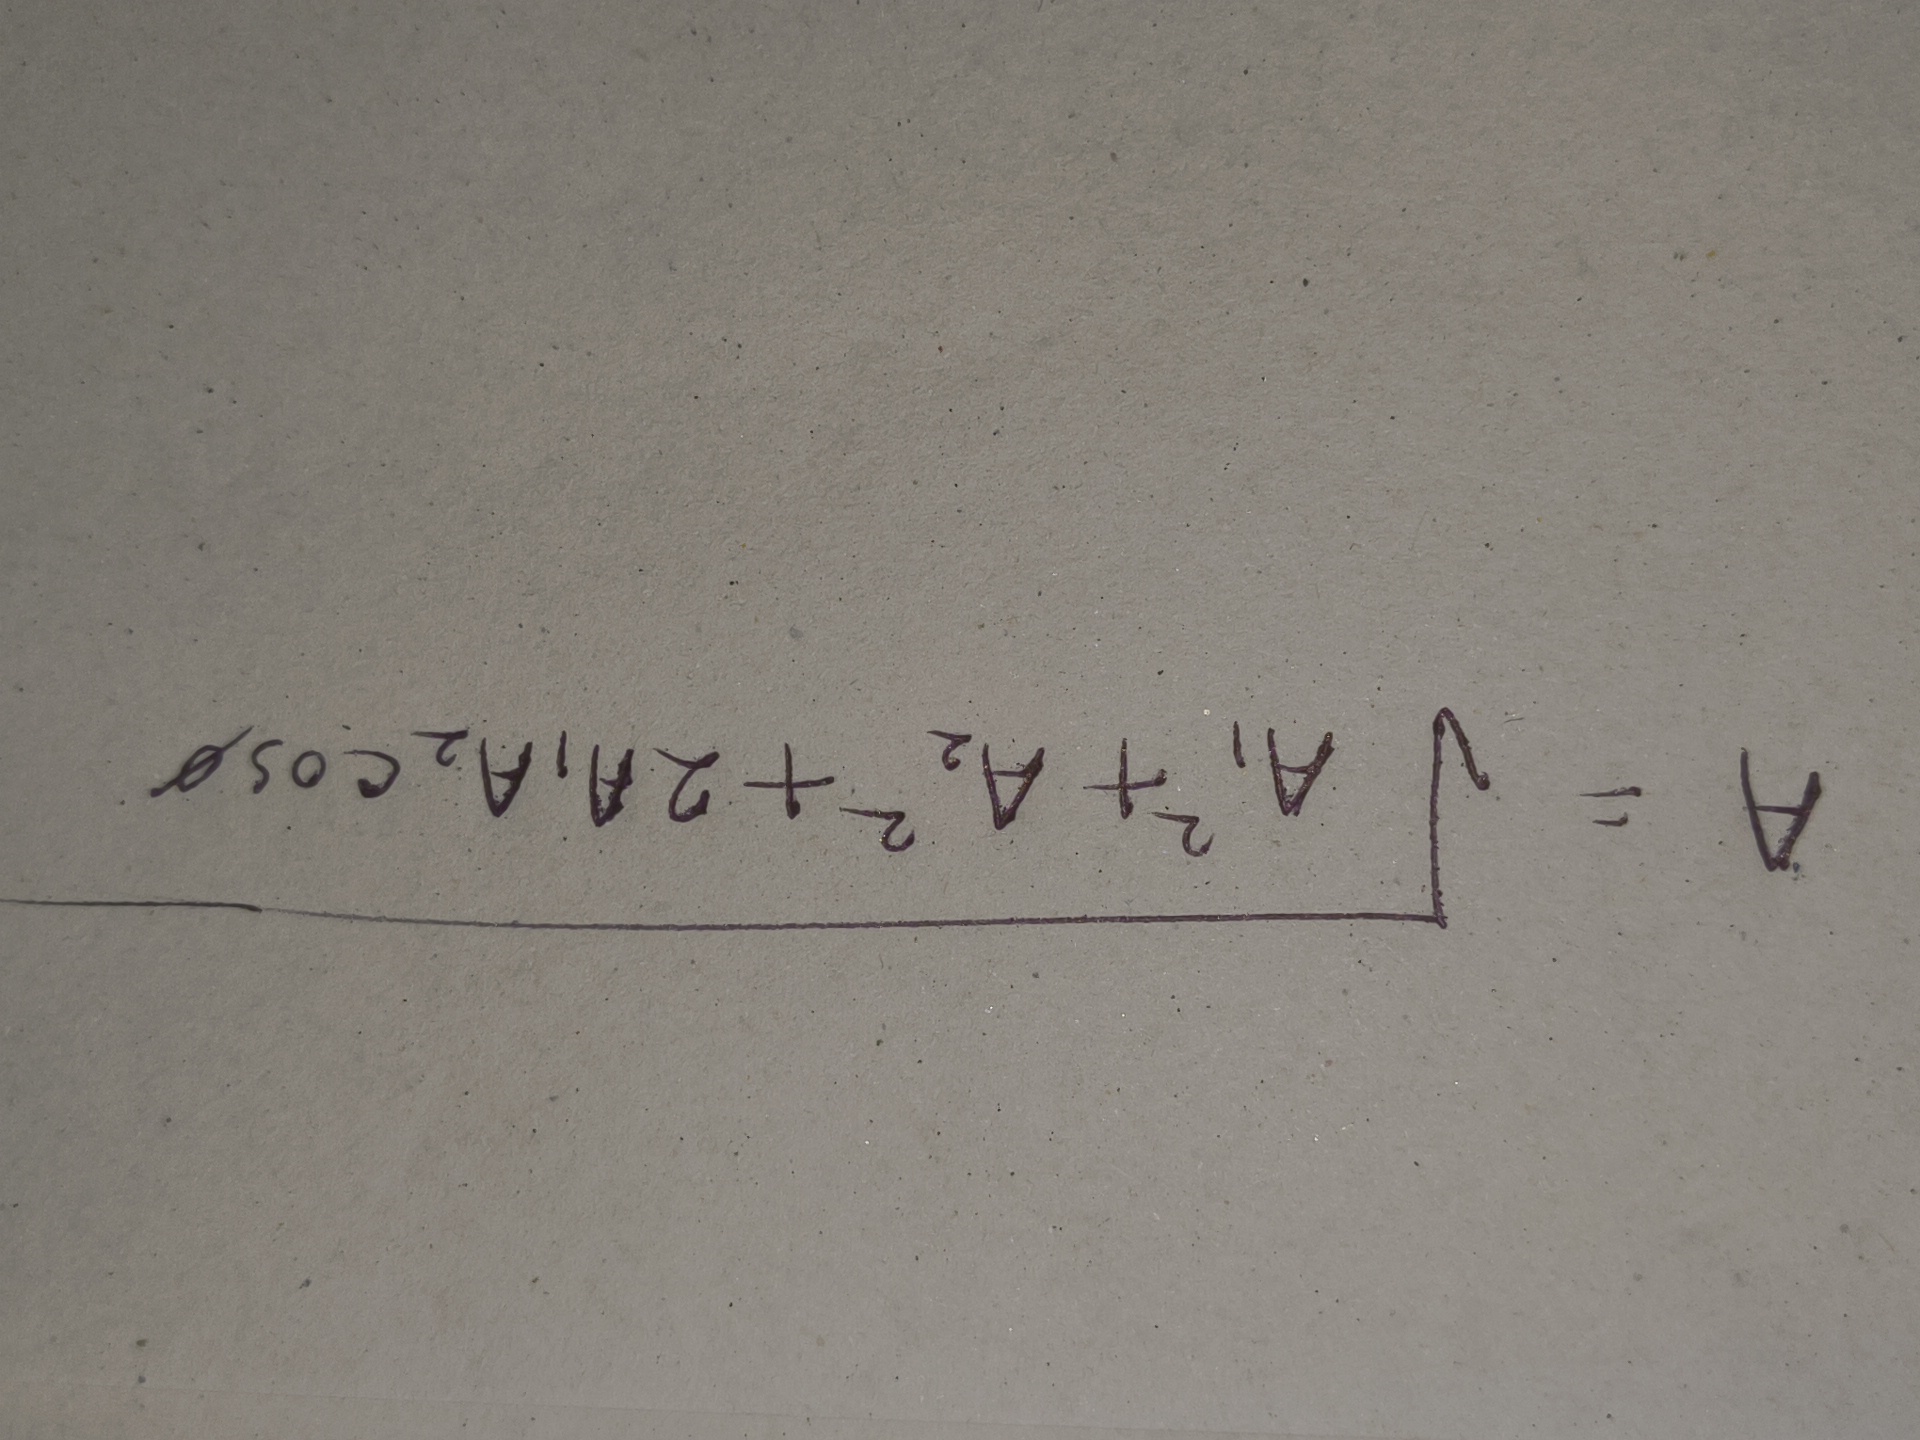 A = √A₁² + A₂² + 2A₁A₂ cosø